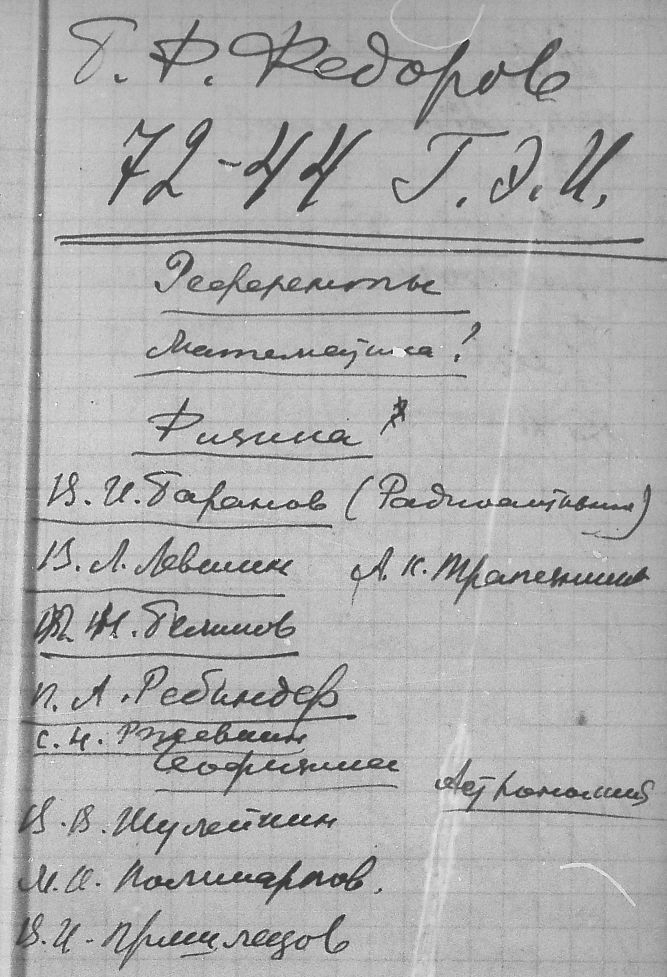 Г. Ф. Федоров
72-44 Г.Э.И.
Референты
Математика!
Физика
В. И. Баранов (Радиоактивн)
В. Л. Левшин А. К. Трапезников
Н. Беликов
П. А. Ребиндер
С. Н. Ржевкин
Геофизика
Астрономия
В. В. Шулейкин
М. И. Поликарпов.
В. И. Пришлецов